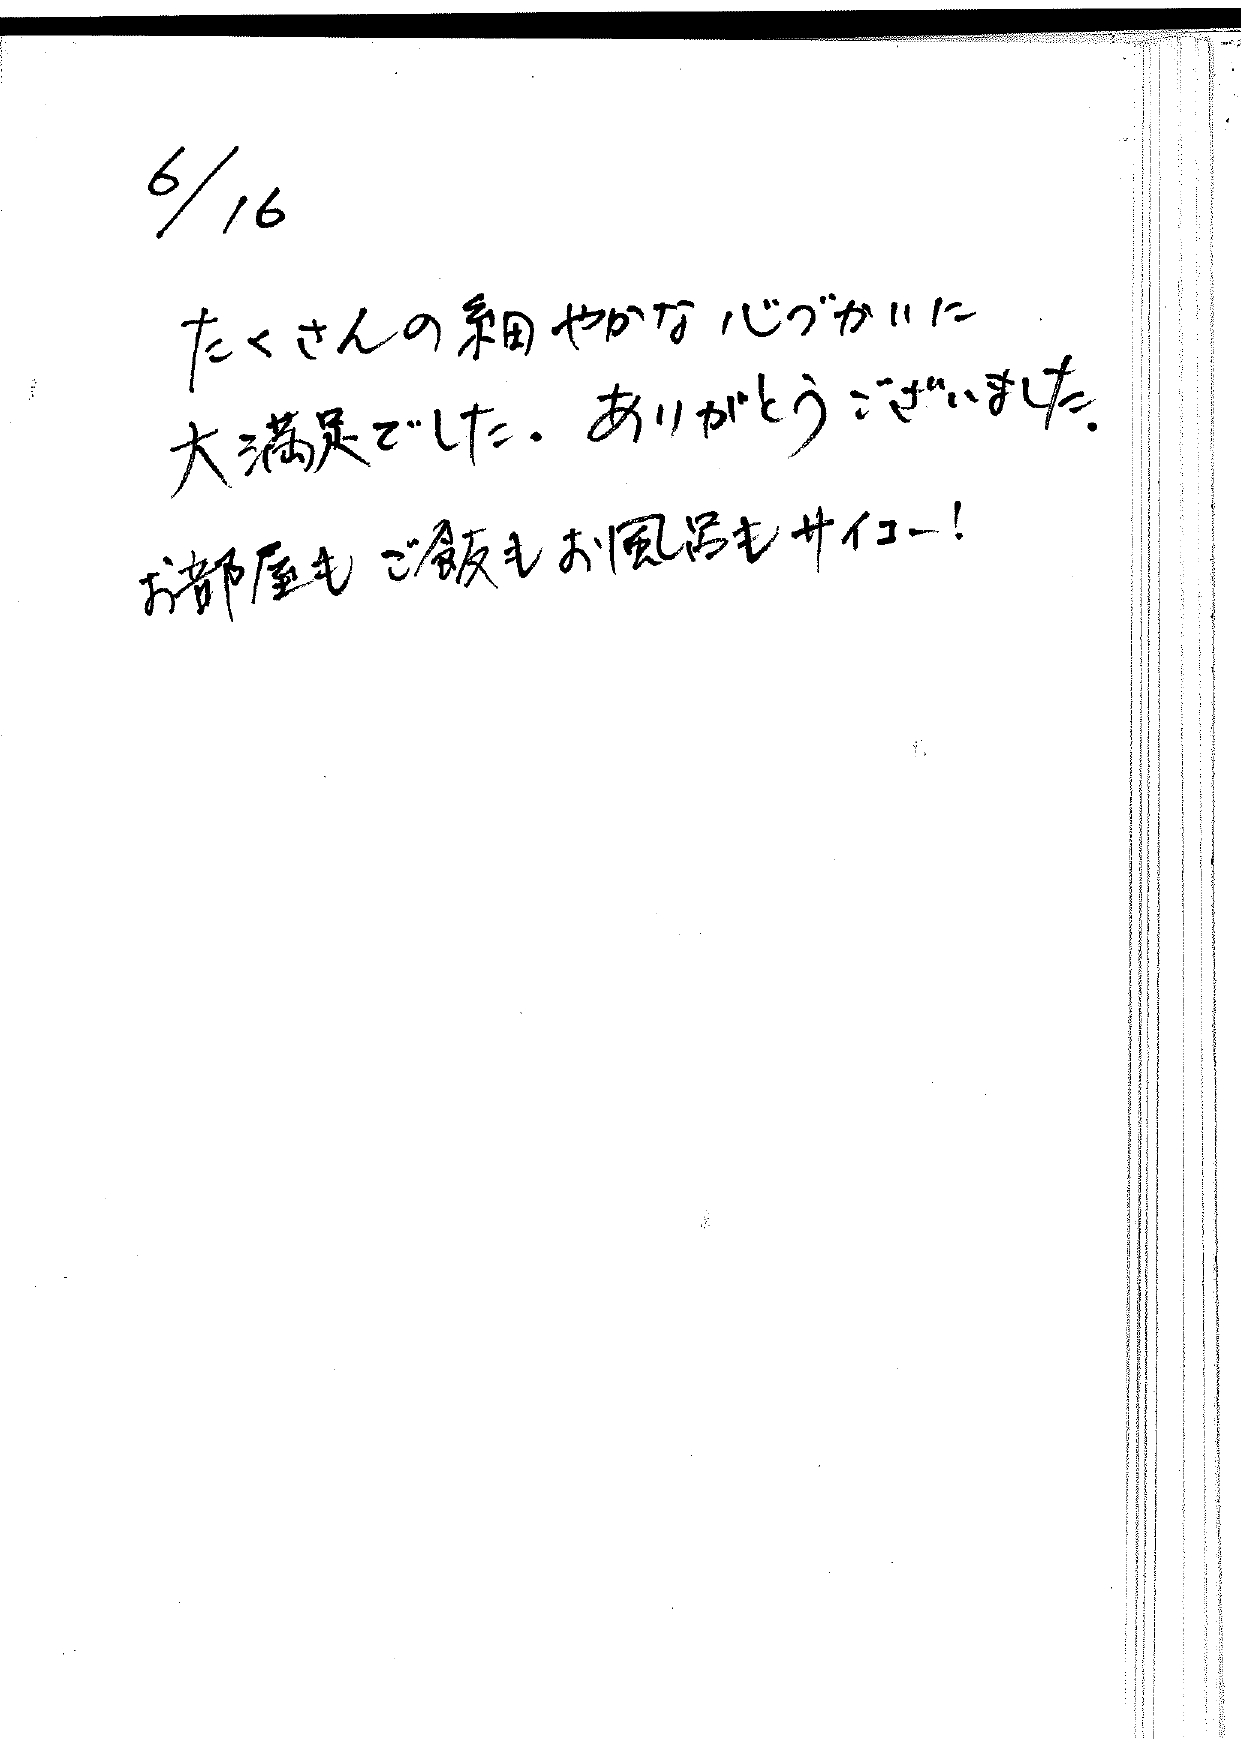 6/16
たくさんの細やかな心づかいに
大満足でした. ありがとうございました.
お部屋も ご飯も お風呂も サイコー!